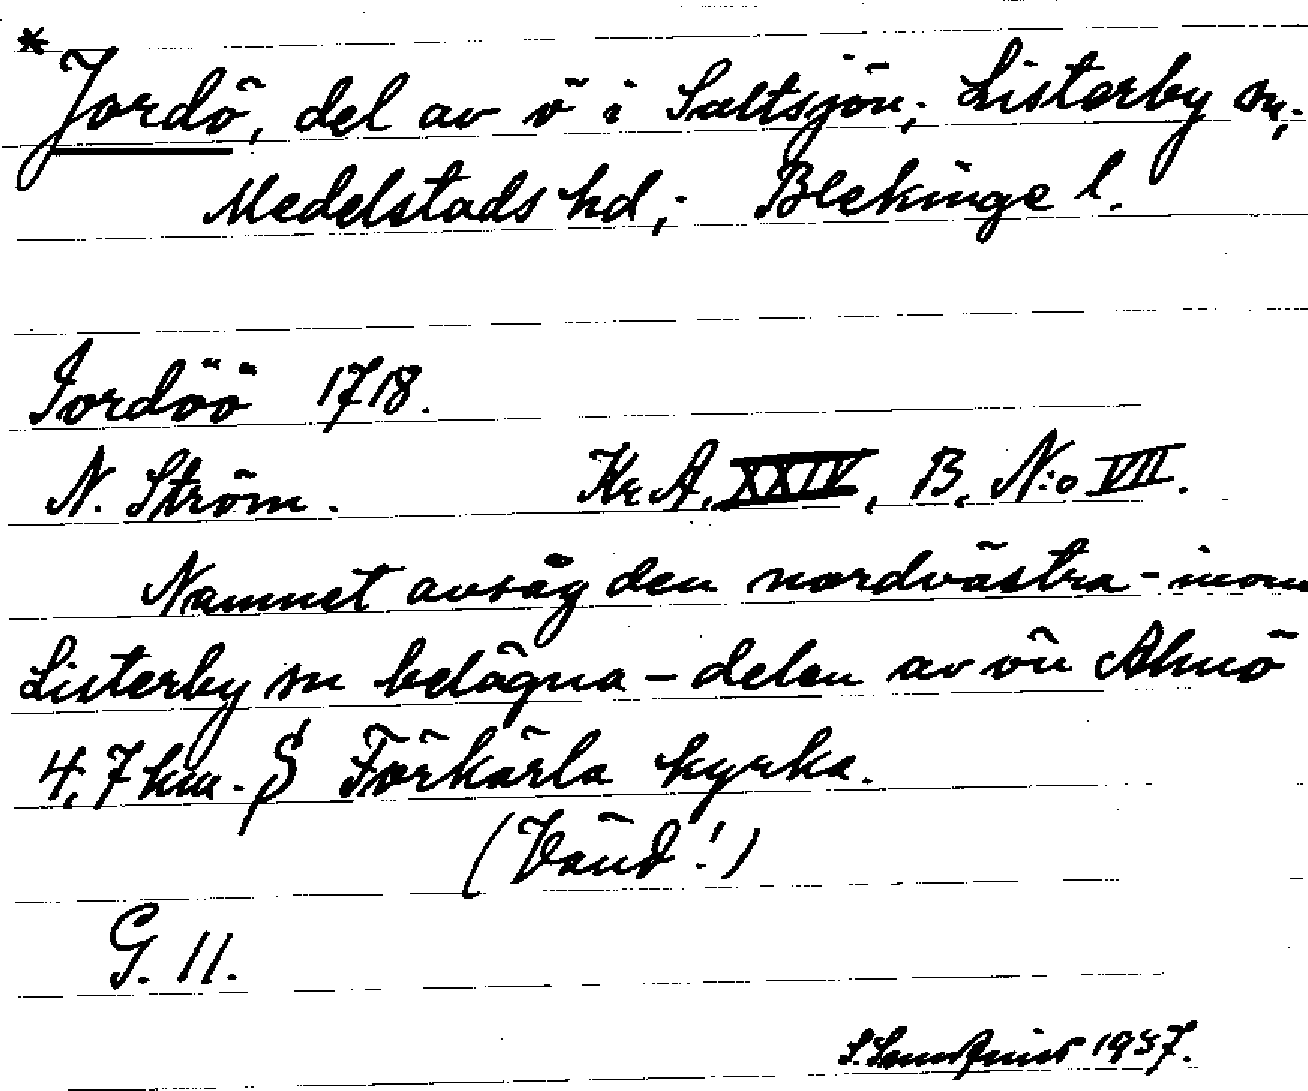 * Jordö, del av ö i Saltsjön; Listerby sn;
Medelstads hd; Blekinge l.
Jordöö 1718.
N. Ström. Kr A, XXIV, B, N:o VII.
Namnet avsåg den nordvästra - inom
Listerby sn belägna - delen av ön Almö
4,7 km. S Förkärla kyrka.
(Vänd!)
G. 11.
1937.